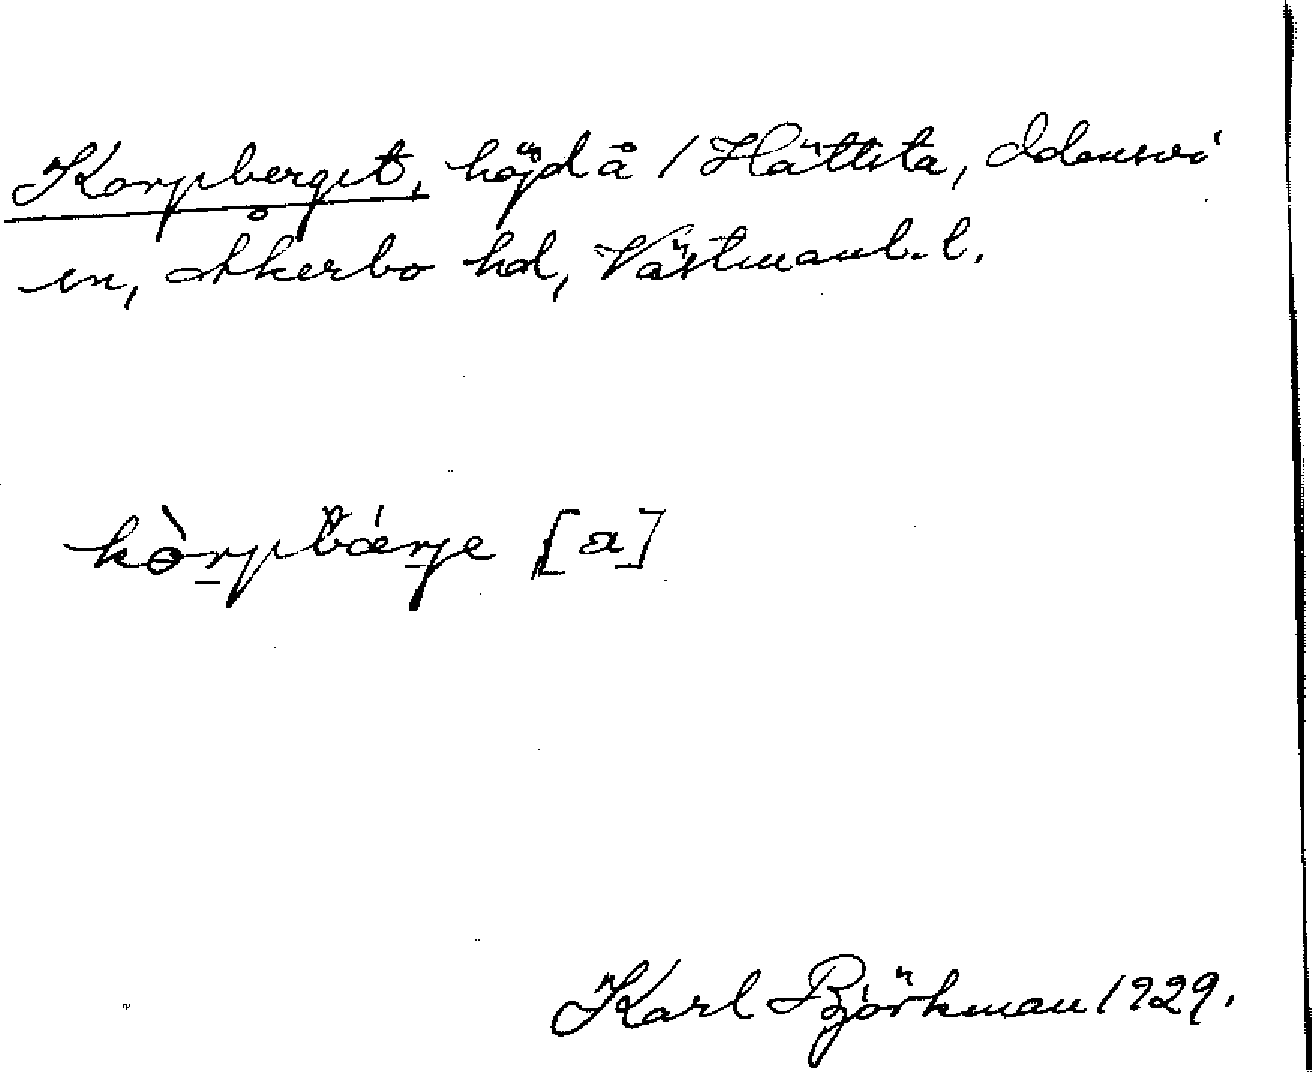 Korpberget, höjd å / Hättsta, Odensvi
sn, Åkerbo hd, Västmanl. l.
kòrpbǽrje [a]
Karl Björkman 1929.